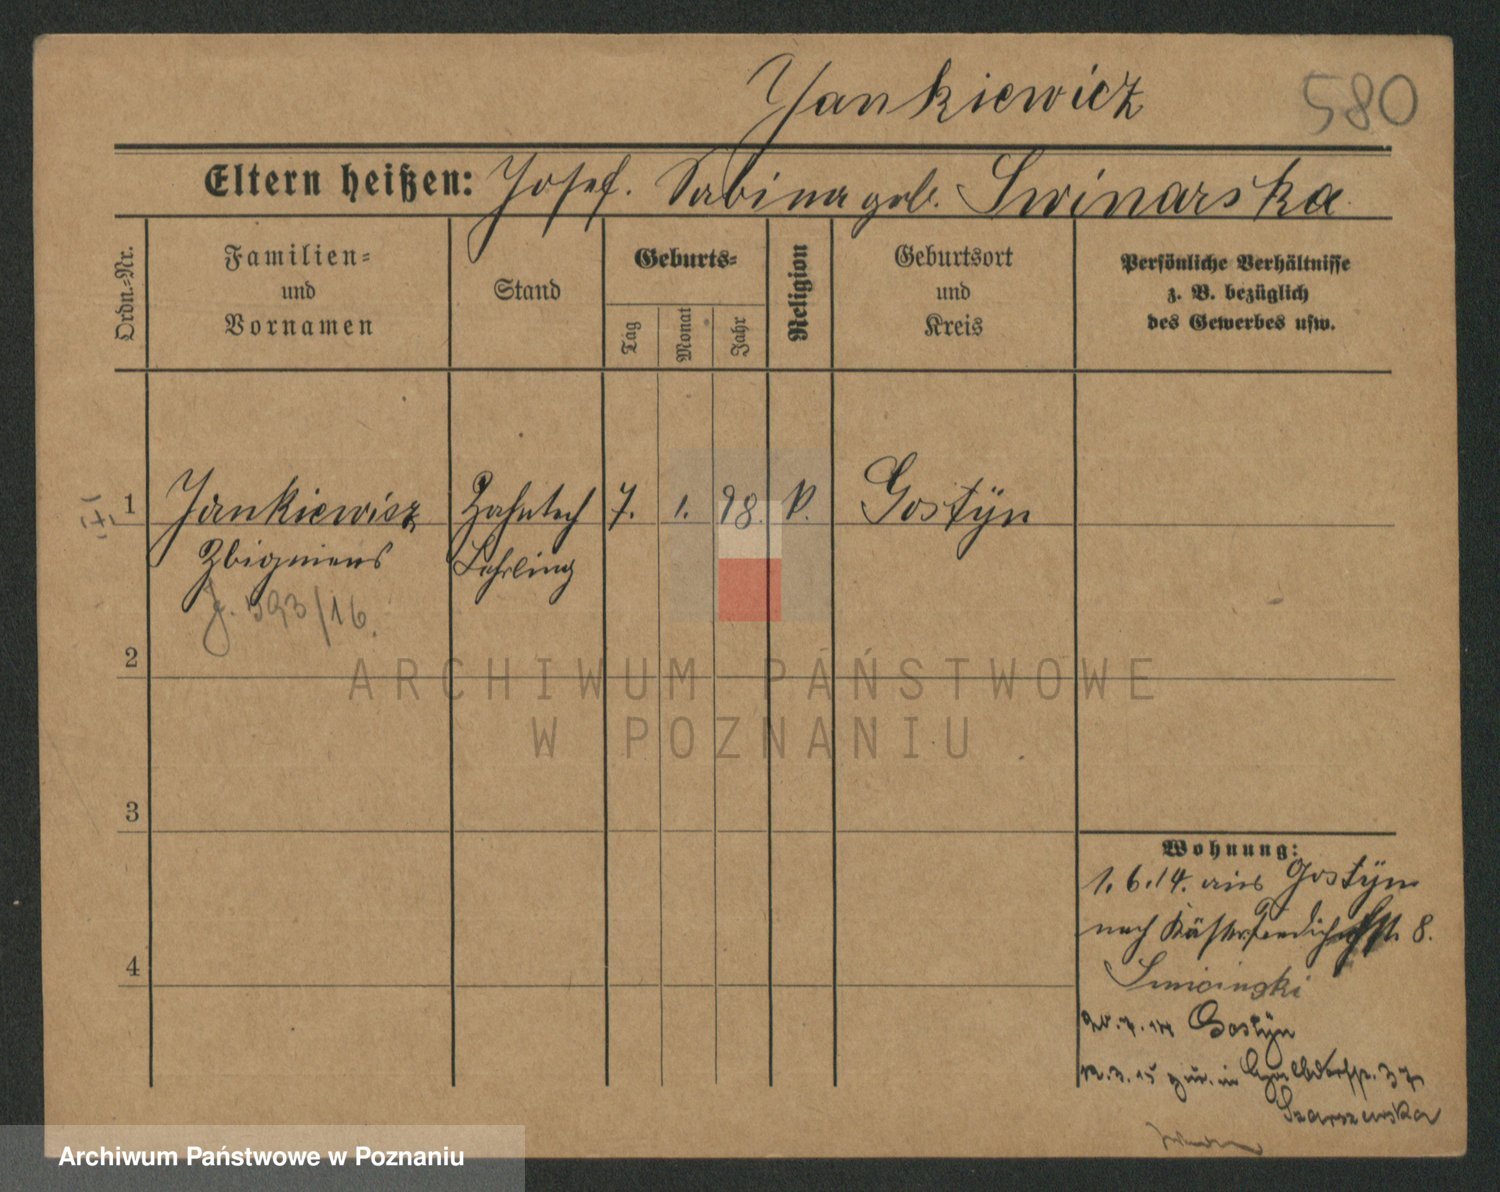 Jankiewicz 580
Eltern heißen: Josef. Sabina geb. Swinarska
Ordn.-Nr.
Familien-
und
Vornamen
Stand
Geburts-
Tag
Monat
Jahr
Religion
Geburtsort
und
Kreis
Persönliche Verhältnisse
z. B. bezüglich
des Gewerbes usw.
1 Jankiewicz Zahntech 7. 1. 98. k. Gostÿn
Zbigniew Lehrling
J. 593/16.
2
ARCHIWUM PAŃSTWOWE
W POZNANIU
3
Wohnung:
1.6.14. aus Gostÿn
nach 8.
4
Gostÿn
12.3.15 zur. in 37
Szarszewska
Archiwum Państwowe w Poznaniu